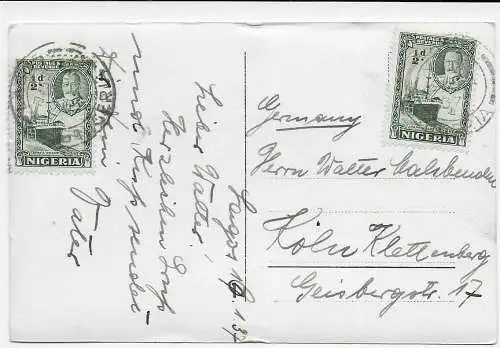 POSTAGE & REVENUE
½d
NIGERIA
POSTAGE & REVENUE
½d
NIGERIA
Lagos 16.1.37
Lieber Walter!
Herzlichen Gruß
und Kuß sendet
Dein
Vater
Germany
Herrn Walter
Köln Klettenberg
Geisbergstr. 17